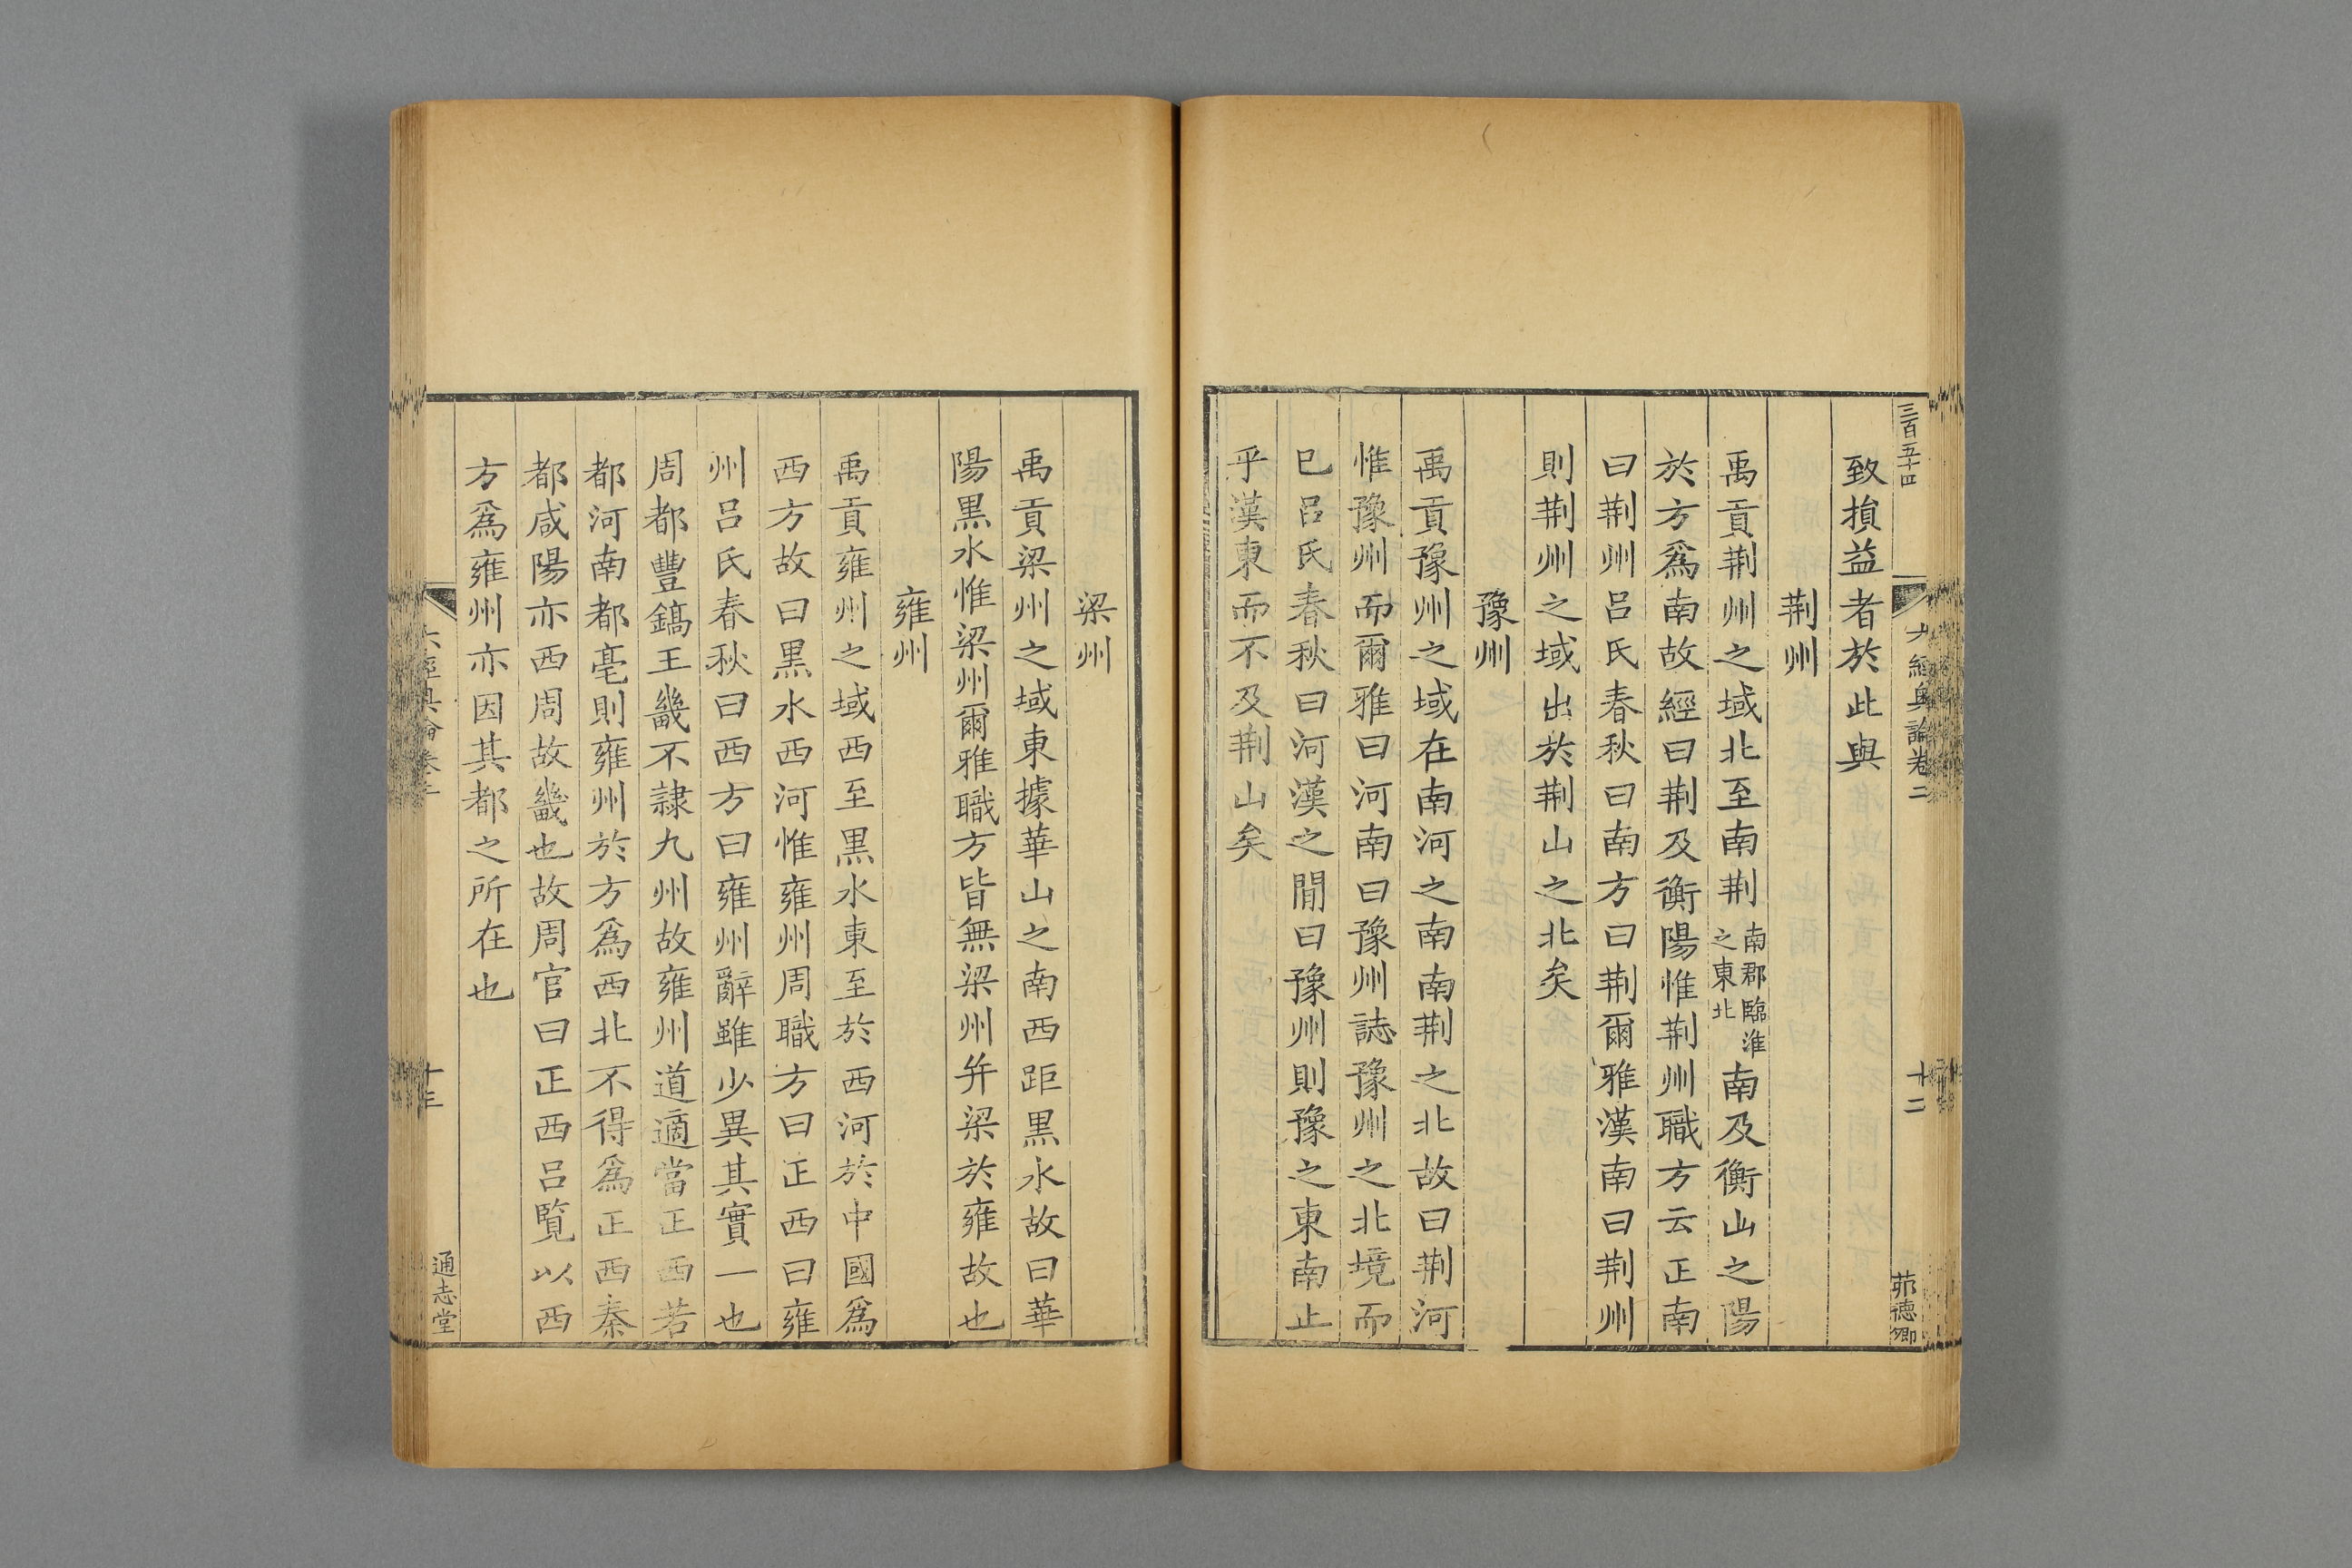 三百五十四
六經奧論卷二
十二
茆德卿
致損益者於此與
荆州
禹貢荆州之域北至南荆南郡臨淮之東北南及衡山之陽
於方爲南故經曰荆及衡陽惟荆州職方云正南
曰荆州吕氏春秋曰南方曰荆爾雅漢南曰荆州
則荆州之域出於荆山之北矣
豫州
禹貢豫州之域在南河之南南荆之北故曰荆河
惟豫州而爾雅曰河南曰豫州誌豫州之北境而
巳吕氏春秋曰河漢之間曰豫州則豫之東南止
乎漢東而不及荆山矣
梁州
禹貢梁州之域東據華山之南西距黒水故曰華
陽黒水惟梁州爾雅職方皆無梁州并梁於雍故也
雍州
禹貢雍州之域西至黒水東至於西河於中國爲
西方故曰黒水西河惟雍州周職方曰正西曰雍
州吕氏春秋曰西方曰雍州辭雖少異其實一也
周都豐鎬王畿不隷九州故雍州道適當正西若
都河南都亳則雍州於方爲西北不得爲正西秦
都咸陽亦西周故畿也故周官曰正西吕覧以西
方爲雍州亦因其都之所在也
六經奧論卷二
十三
通志堂